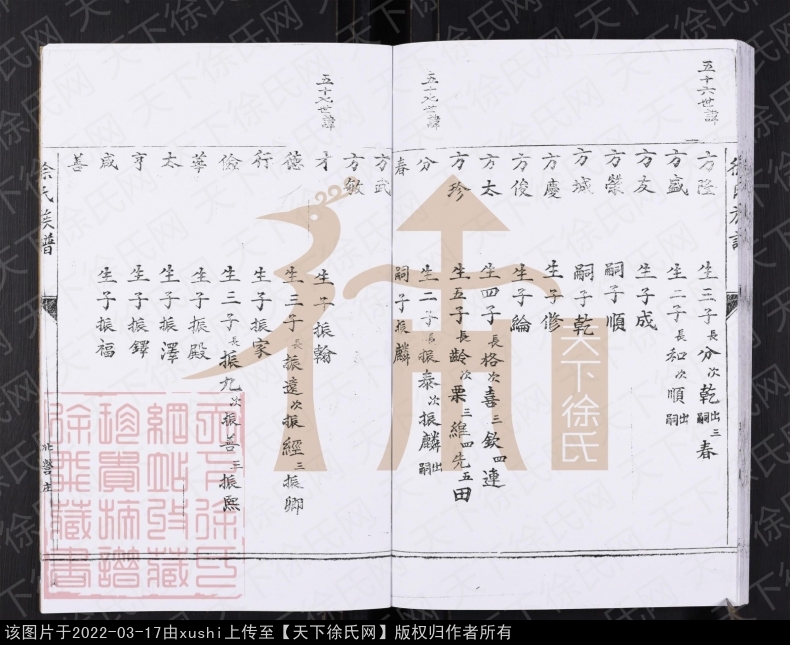 徐氏族譜
五十六世諱
方隆 生三子長分次乾出嗣三春
方盛 生二子長和次順出嗣
方友 生子成
方榮 嗣子順
方城 嗣子乾
方慶 生子修
方俊 生子綸
方太 生四子長格次喜三欽四連
方珍 生五子長齡次栗三維四先五田
五十七世諱
分 生二子長振泰次振麟出嗣
春 嗣子振麟
方武
方敏
五十七世諱
才 生子振翰
德 生三子長振遠次振經三振卿
行 生子振家
儉 生三子長振九次振善三振熙
華 生子振殿
太 生子振澤
亨 生子振鐸
成 生子振福
善
徐氏族譜
天下徐氏
天下徐氏网
该图片于2022-03-17由xushi上传至【天下徐氏网】版权归作者所有